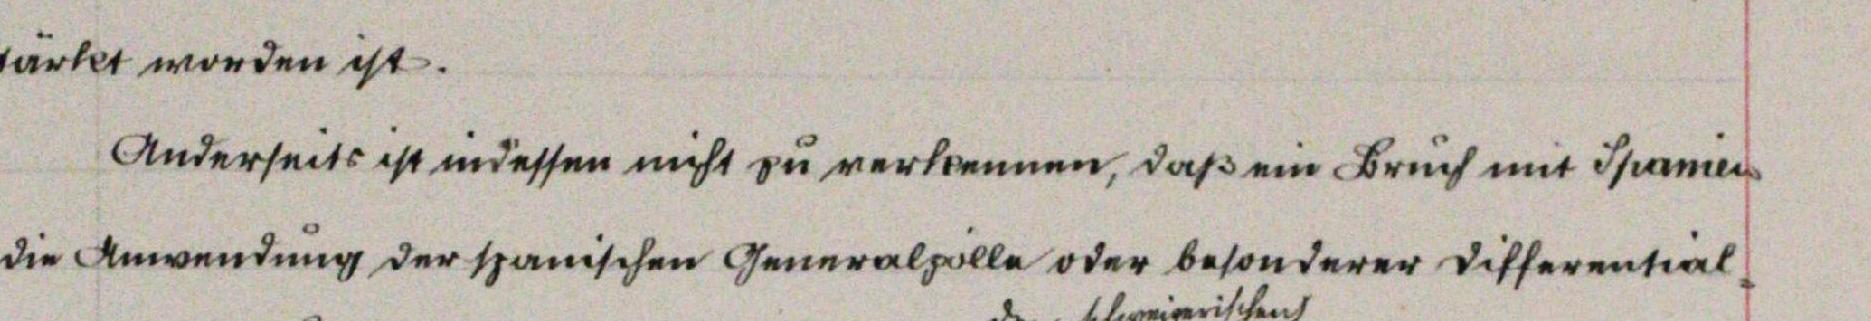 tärkt worden ist.
Anderseits ist indessen nicht zu verkennen, daß ein Bruch mit Spanien
die Anwendung der spanischen Generalzölle oder besonderer Differential-
der schweizerischen